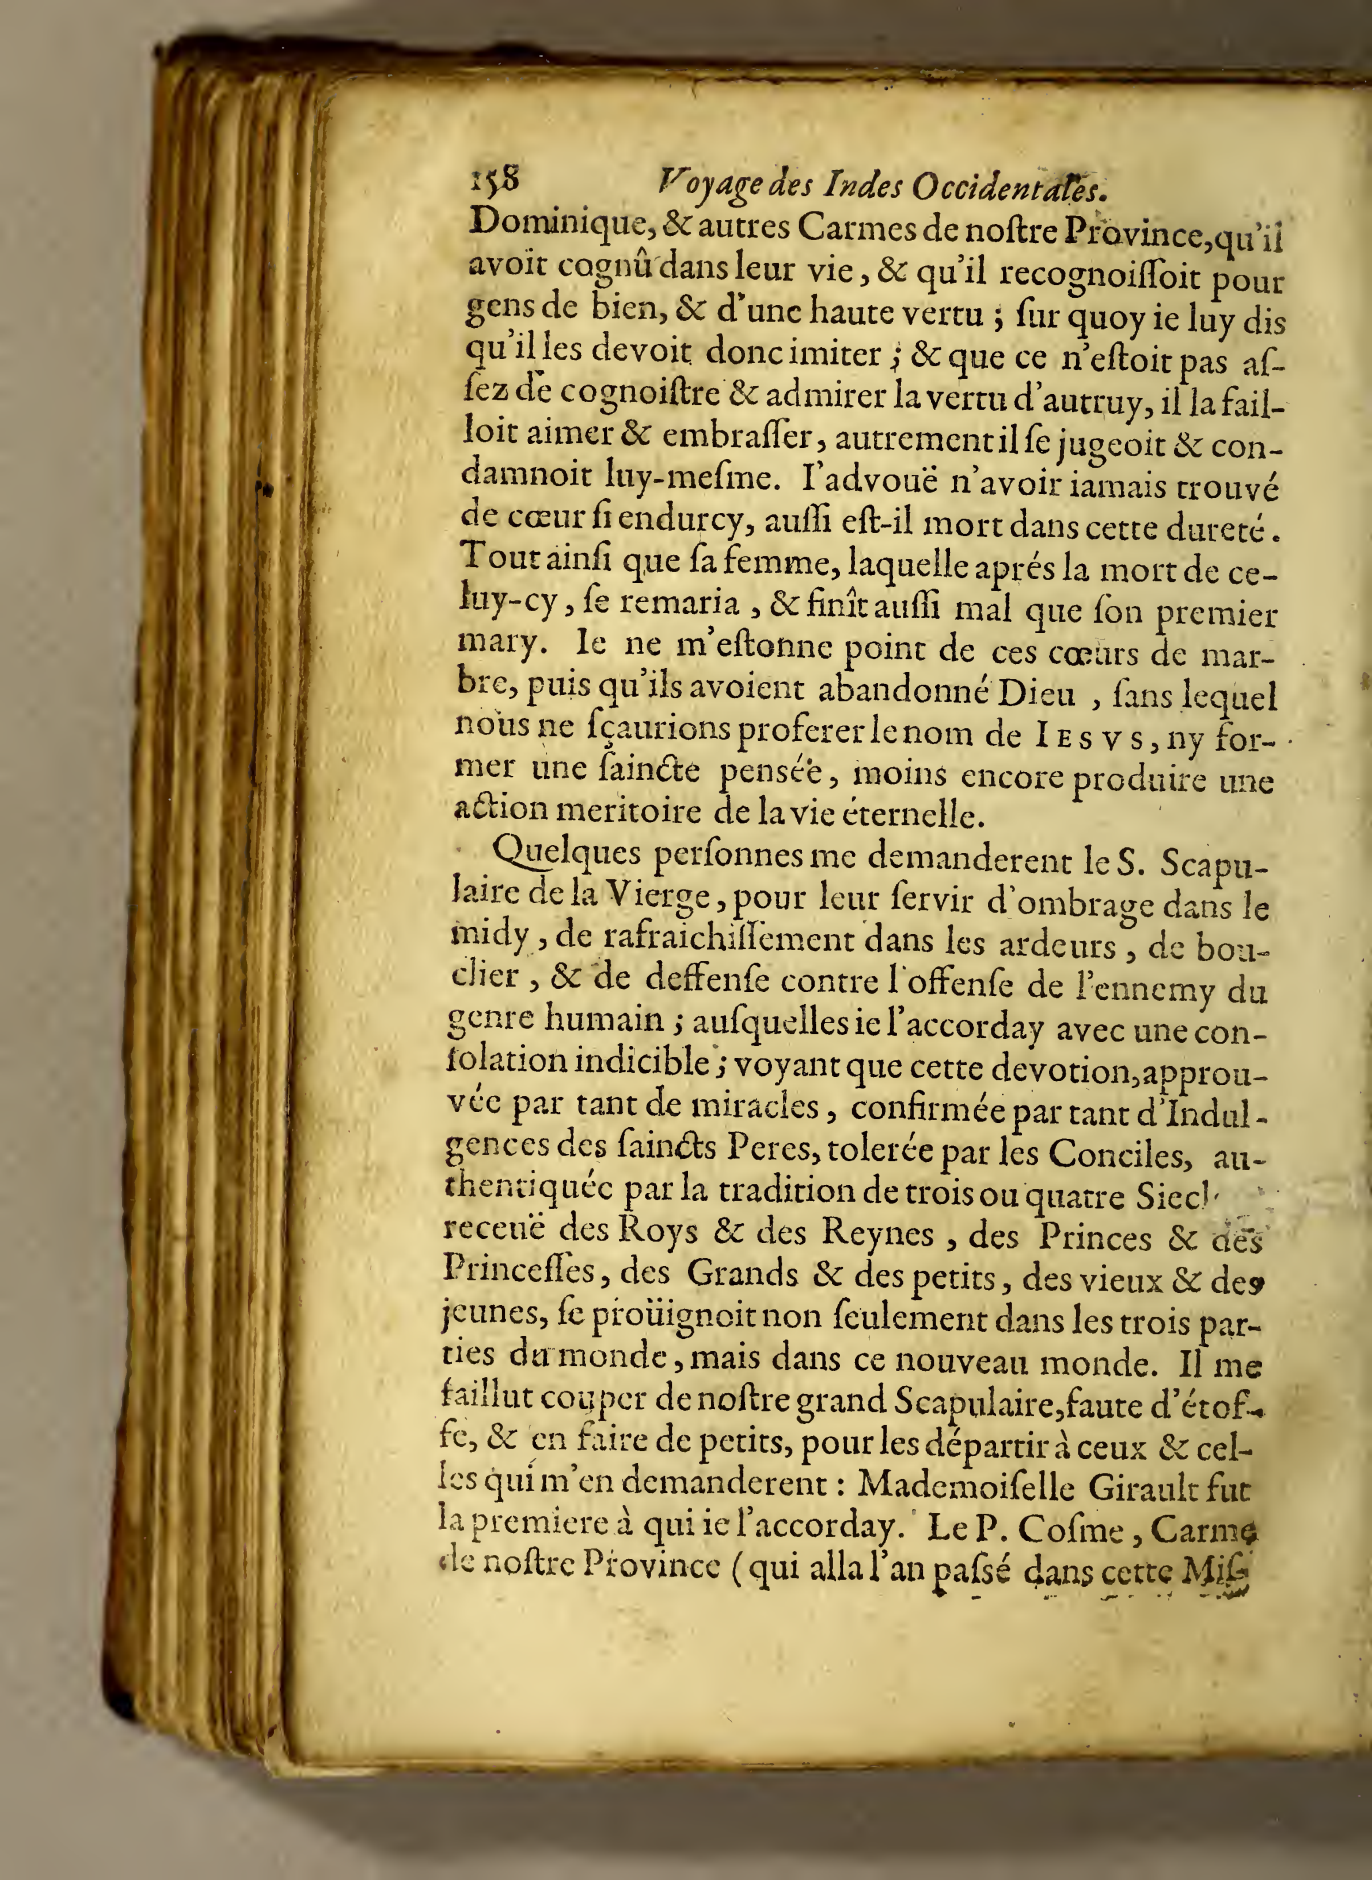 158 Voyage des Indes Occidentales.
Dominique, & autres Carmes de noſtre Province, qu'il
avoit cognû dans leur vie, & qu'il recognoiſſoit pour
gens de bien, & d'une haute vertu ; ſur quoy ie luy dis
qu'il les devoit donc imiter ; & que ce n'eſtoit pas aſ-
ſez de cognoiſtre & admirer la vertu d'autruy, il la fail-
loit aimer & embraſſer, autrement il ſe jugeoit & con-
damnoit luy-meſme. I'advouë n'avoir iamais trouvé
de cœur ſi endurcy, auſſi eſt-il mort dans cette dureté.
Tout ainſi que ſa femme, laquelle aprés la mort de ce-
luy-cy, ſe remaria, & finît auſſi mal que ſon premier
mary. Ie ne m'eſtonne point de ces cœurs de mar-
bre, puis qu'ils avoient abandonné Dieu, ſans lequel
nous ne ſçaurions proferer le nom de IESVS, ny for-
mer une ſaincte pensée, moins encore produire une
action meritoire de la vie éternelle.
Quelques perſonnes me demanderent le S. Scapu-
laire de la Vierge, pour leur ſervir d'ombrage dans le
midy, de rafraichiſſement dans les ardeurs, de bou-
clier, & de deffenſe contre l'offenſe de l'ennemy du
genre humain ; auſquelles ie l'accorday avec une con-
ſolation indicible ; voyant que cette devotion, approu-
vée par tant de miracles, confirmée par tant d'Indul-
gences des ſaincts Peres, tolerée par les Conciles, au-
thentiquée par la tradition de trois ou quatre Siecl
receuë des Roys & des Reynes, des Princes & des
Princeſſes, des Grands & des petits, des vieux & des
jeunes, ſe proüignoit non ſeulement dans les trois par-
ties du monde, mais dans ce nouveau monde. Il me
faillut couper de noſtre grand Scapulaire, faute d'étof-
fe, & en faire de petits, pour les départir à ceux & cel-
les qui m'en demanderent : Mademoiſelle Girault fut
la premiere à qui ie l'accorday. Le P. Coſme, Carme
de noſtre Province (qui alla l'an paſsé dans cette Miſ-